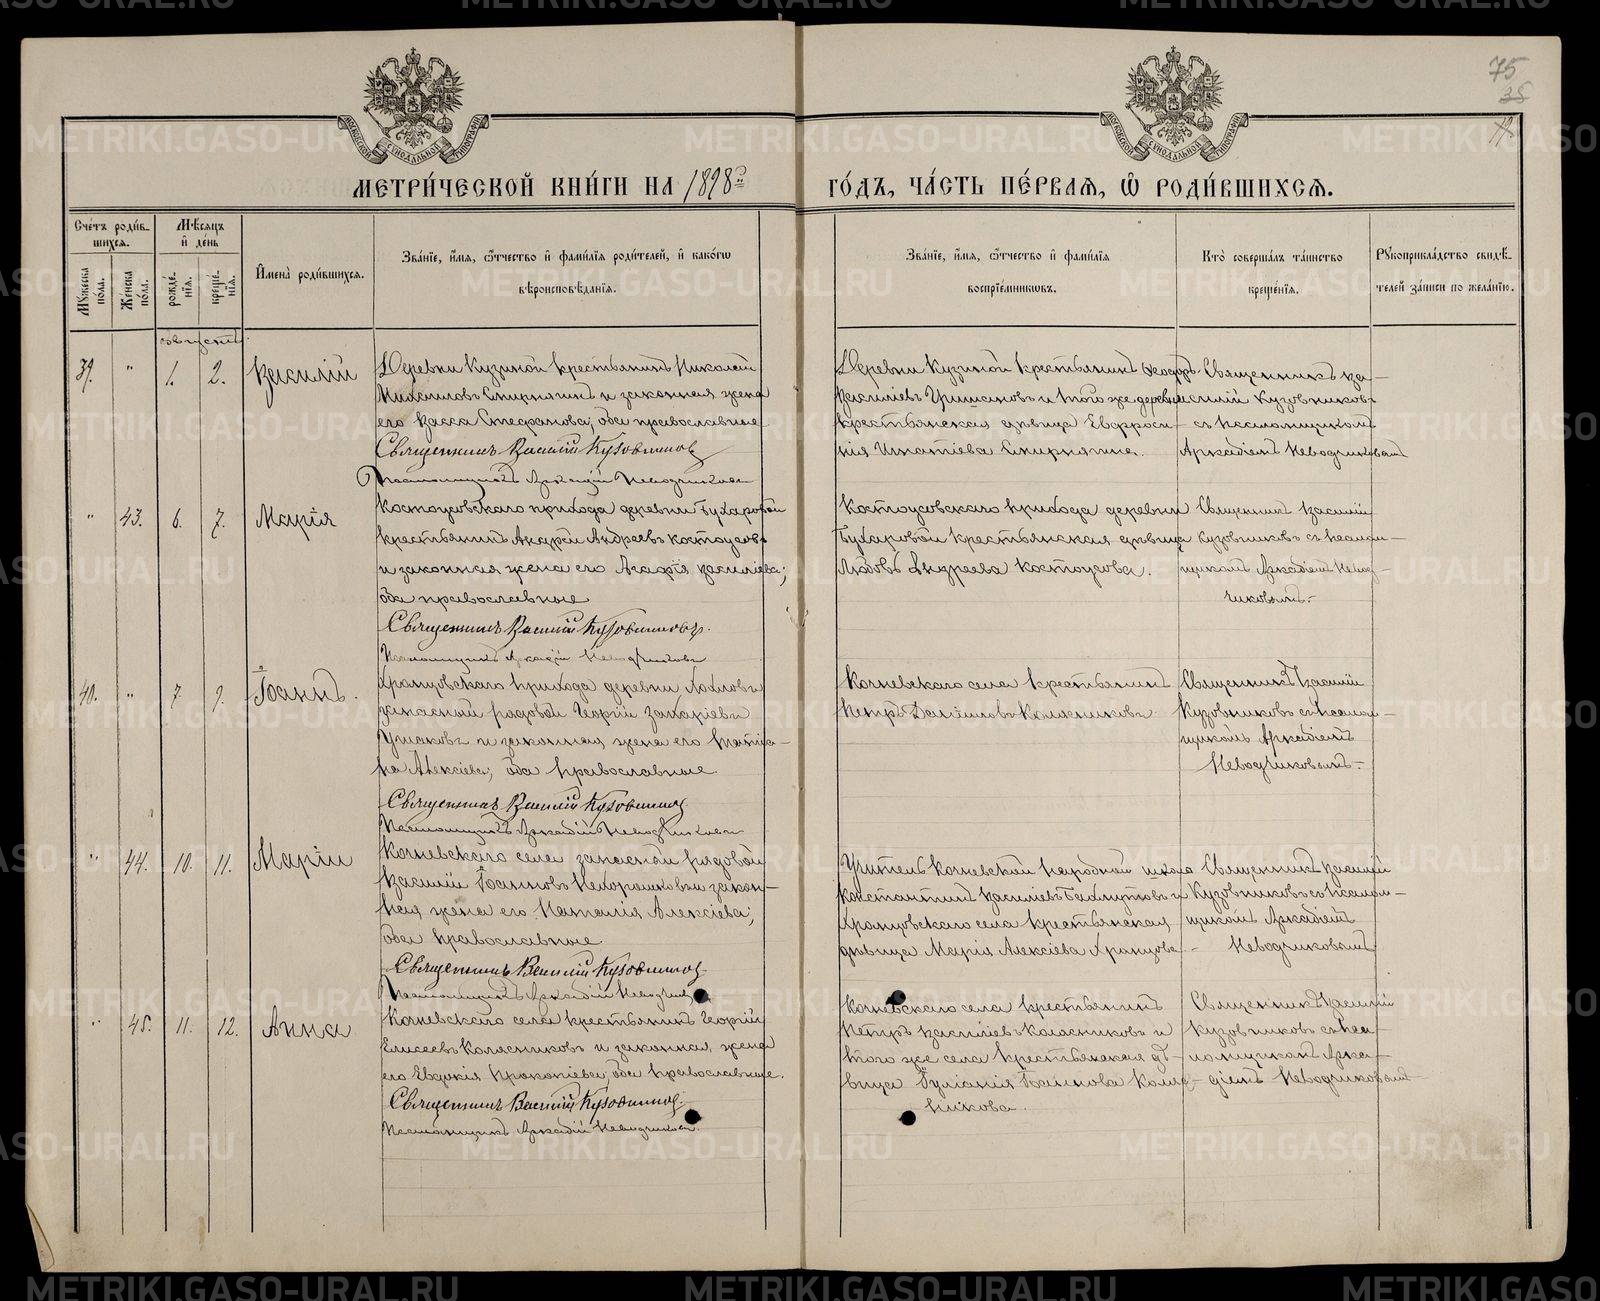 75
35
МЕТРИ́ЧЕСКОЙ КНИ́ГИ НА 1898й
ГО́ДЪ, ЧА́СТЬ ПЕ́РВАѦ, Ѡ҆ РОДИ́ВШИХСѦ.
Сче́тъ роди́в-
шихся.
Мѣ́сяцъ
и҆ де́нь
Му́жеска по́ла.
Же́нска по́ла.
рожде́-
нїѧ.
креще́-
нїѧ.
И҆мена̀ роди́вшихся.
Зва́нїе, и҆́мя, ѻ҆́тчество и҆ фами́лїя роди́телей, и҆ како́гѡ
вѣроисповѣ́данїя.
Зва́нїе, и҆́мя, ѻ҆́тчество и҆ фами́лїя
воспрїе́мникѡвъ.
Кто̀ соверша́лъ та́инство
креще́нїя.
Рукоприкла́дство свидѣ́-
телей за́писи по жела́нїю.
Августъ
39. " 1. 2. Василій
Деревни Кузиной крестьянинъ Николай
Михаиловъ Спирнягинъ и законная жена
его Васса Стефанова; оба православные
Священникъ Василій Кузовниковъ
Псаломщикъ Аркадій Неводчиковъ
Деревни Кузиной крестьянинъ Феодоръ
Василіевъ и того же деревни
крестьянская дѣвица Евфроси-
нія Игнатіева Спирнягина.
Священникъ Ва-
силій Кузовниковъ
съ псаломщикомъ
Аркадіемъ Неводчиковымъ
" 43. 6. 7. Марія
Костоусовскаго прихода деревни Бухаровой
крестьянинъ Андрей Андреевъ Костоусовъ
и законная жена его Агафія Василіева;
оба православные
Священникъ Василій Кузовниковъ.
Псаломщикъ Аркадій Неводчиковъ
Костоусовскаго прихода деревни
Бухаровой крестьянская дѣвица
Любовь Андреева Костоусова.
Священникъ Василій
Кузовниковъ съ псалом-
щикомъ Аркадіемъ Невод-
чиковымъ.
40. " 7. 9. Іоаннъ.
Храпцовскаго прихода деревни
запасный рядовой Георгій Захаріевъ
Ушаковъ и законная жена его Татіа-
на Алексіева; оба православные.
Священникъ Василій Кузовниковъ
Псаломщикъ Аркадій Неводчиковъ
Кочневскаго села крестьянинъ
Петръ Даніиловъ Колясниковъ
Священникъ Василій
Кузовниковъ съ псалом-
щикомъ Аркадіемъ
Неводчиковымъ.
" 44. 10. 11. Марія
Кочневскаго села запасной рядовой
Василій Іоанновъ Нехорошковъ и закон-
ная жена его Наталія Алексіева;
оба православные.
Священникъ Василій Кузовниковъ.
Псаломщикъ Аркадій Неводчиковъ
Учитель Кочневской народной школы
Константинъ Василіевъ и
Храпцовскаго села крестьянская
дѣвица Марія Алексіева Храпцова
Священникъ Василій
Кузовниковъ съ псалом-
щикомъ Аркадіемъ
Неводчиковымъ
" 45. 11. 12. Анна
Кочневскаго села крестьянинъ Георгій
Елисеевъ Колясниковъ и законная жена
его Евдокія Прокопіева; оба православные.
Священникъ Василій Кузовниковъ.
Псаломщикъ Аркадій Неводчиковъ.
Кочневскаго села крестьянинъ
Петръ Василіевъ Колясниковъ и
того же села крестьянская дѣ-
вица Іуліанія Іоаннова Коляс-
никова.
Священникъ Василій
Кузовниковъ съ пса-
ломщикомъ Арка-
діемъ Неводчиковымъ
METRIKI.GASO-URAL.RU